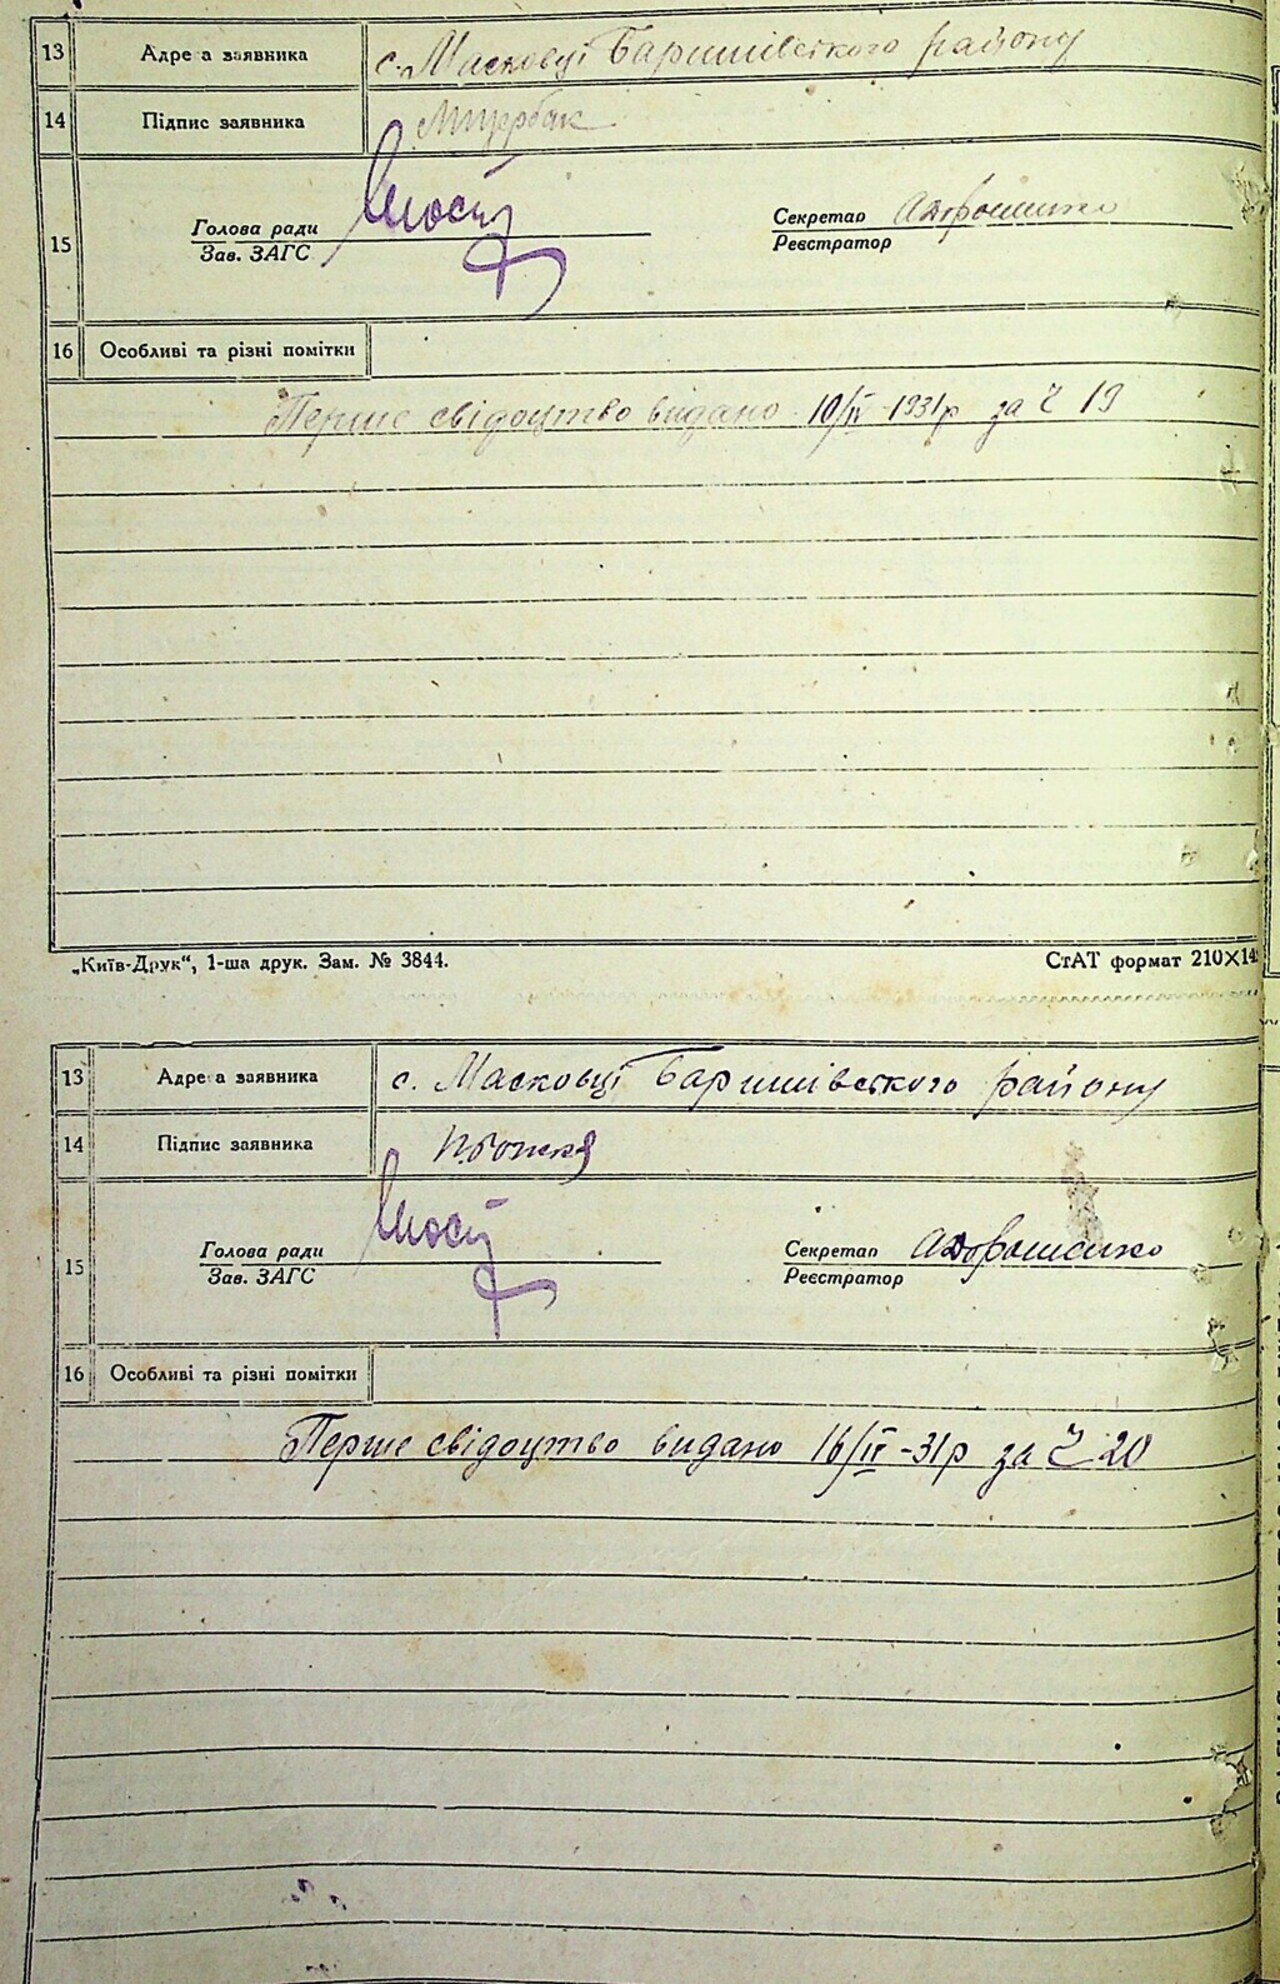 13 Адре а заявника с. Масковці Баришівського району
14 Підпис заявника
15 Голова ради Секретар АДорошенко
Зав. ЗАГС Реєстратор
16 Особливі та різні помітки
Перше свідоцтво видано 10/IV 1931р за Ч 19
„Київ-Друк“, 1-ша друк. Зам. № 3844. СтАТ формат 210×14
13 Адре а заявника с. Масковці Баришівського району
14 Підпис заявника
15 Голова ради Секретар АДорошенко
Зав. ЗАГС Реєстратор
16 Особливі та різні помітки
Перше свідоцтво видано 16/IV -31р за Ч 20